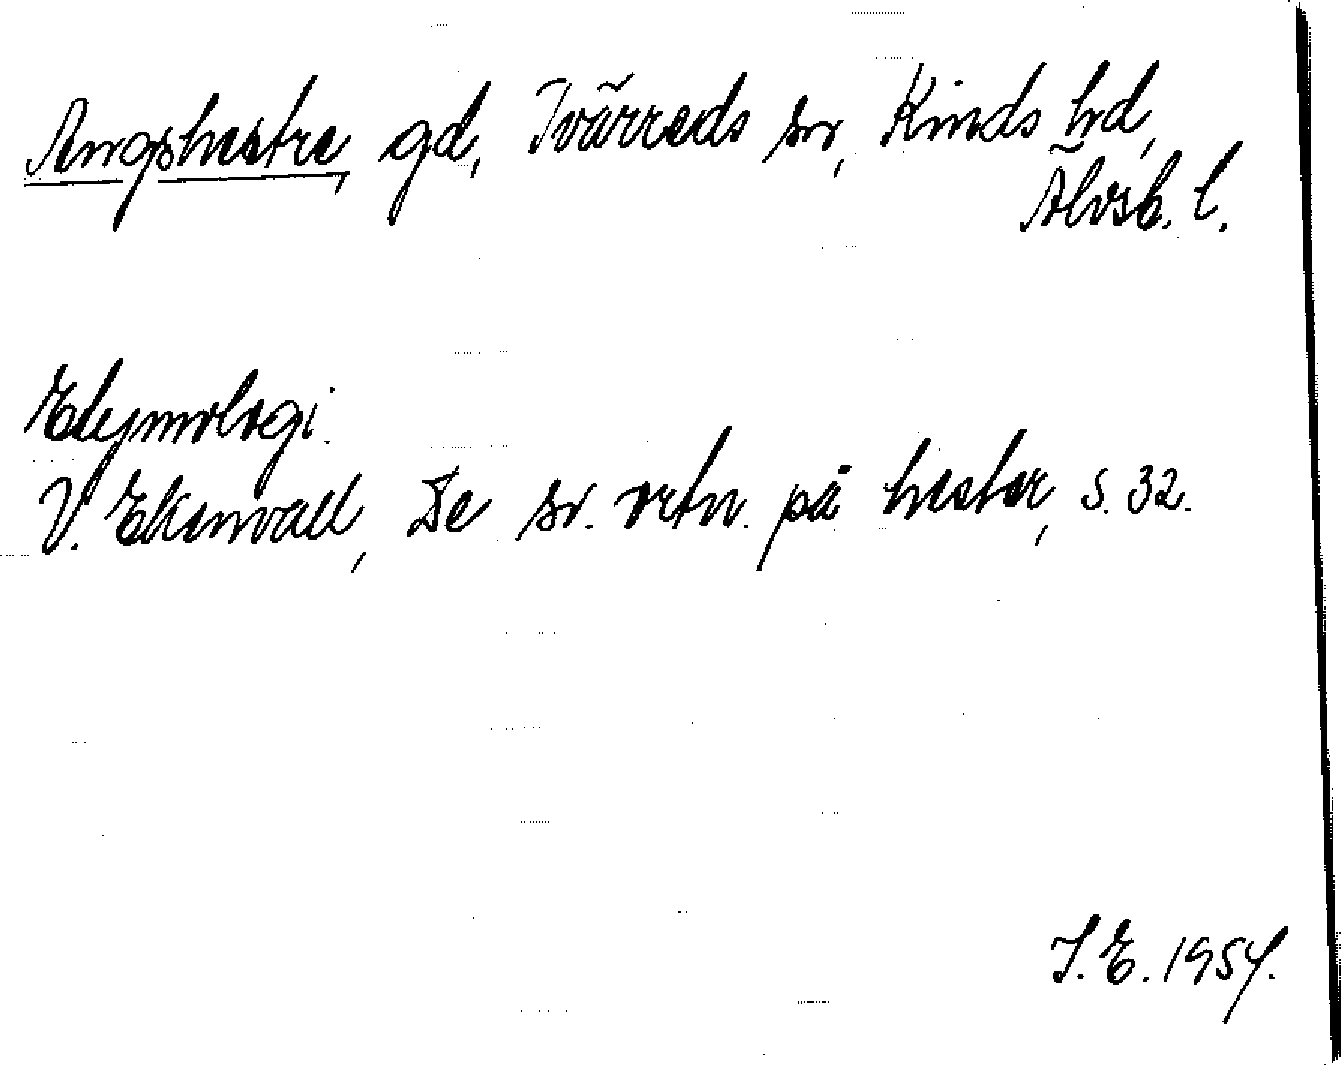 Angshestra, gd, Tvärreds sn, Kinds hd,
Älvsb. l.
Etymologi.
V. Ekenvall, De sv. ortn. på hester, s. 32.
I. E. 1954.